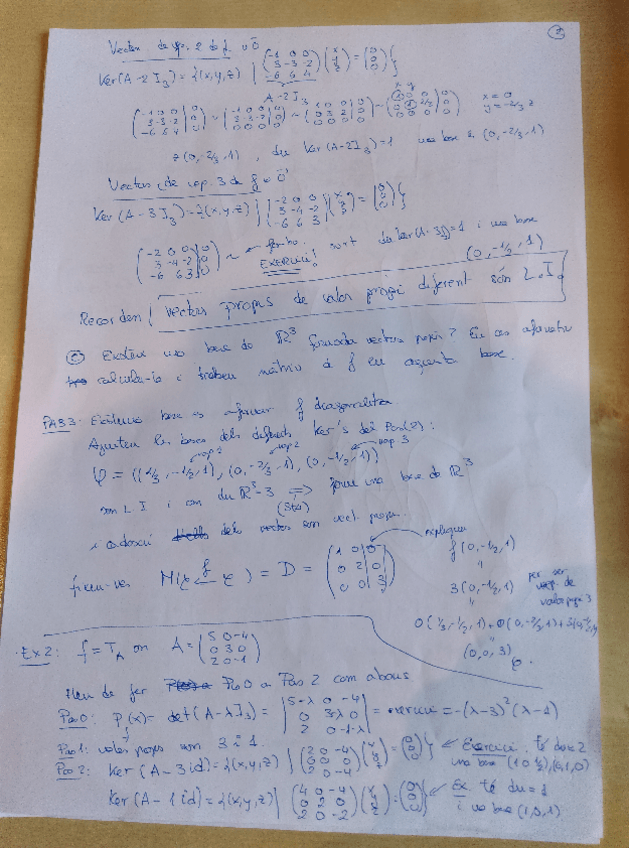 2
Vectors de vap. 2 de f. ≠ 0
Ker(A-2I₃) = {(x,y,z) | (-1 0 0 / 3 -3 -2 / -6 6 4)(x / y / z) = (0 / 0 / 0)}
A-2I₃
(-1 0 0 | 0 / 3 -3 -2 | 0 / -6 6 4 | 0) ~ (-1 0 0 | 0 / 3 -3 -2 | 0 / 0 0 0 | 0) ~ (1 0 0 | 0 / 0 3 2 | 0 / 0 0 0 | 0) ~ (1 0 0 | 0 / 0 1 2/3 | 0 / 0 0 0 | 0) x = 0 y = -2/3 z
z(0, -2/3, 1), dim Ker(A-2I₃)=1 una base és (0, -2/3, 1)
Vectors de vap. 3 de f ≠ 0
Ker(A-3I₃) = {(x,y,z) | (-2 0 0 / 3 -4 -2 / -6 6 3)(x / y / z) = (0 / 0 / 0)}
(-2 0 0 | 0 / 3 -4 -2 | 0 / -6 6 3 | 0) ~ EXERCICI! surt dim Ker(A-3I₃)=1 i una base
(0, -1/2, 1)
Recordeu! vectors propis de valor propi diferent són L.I.
c) Existeix una base de ℝ³ formada vectors propis? En cas afirmatiu
calculeu-la i trobeu matriu de f en aquesta base.
PAS 3: base f diagonalitza.
Ajuntem les bases dels diferents Ker's del Pas(2):
vap 2 vap 3
φ = ((1/3, -1/2, 1), (0, -2/3, 1), (0, -1/2, 1))
són L.I i com dim ℝ³=3 ⟹ forma una base de ℝ³
i dels vectors son vect. propis.
fixeu-vos M(φ ←f φ) = D = (1 0 0 / 0 2 0 / 0 0 3) expliquem
f(0, -1/2, 1)
"
3(0, -1/2, 1) per ser vep. de valor propi 3
"
0(1/3, -1/2, 1) + 0(0, -2/3, 1) + 3(0, -1/2, 1)
"
(0, 0, 3)φ.
Ex 2: f = T_A on A = (5 0 -4 / 0 3 0 / 2 0 -1)
Hem de fer Pas 0 a Pas 2 com abans
Pas 0: P_f(x) = det(A-λI₃) = |5-λ 0 -4 / 0 3-λ 0 / 2 0 -1-λ| = exercici = -(λ-3)²(λ-1)
Pas 1: valors propis son 3 i 1.
Pas 2: Ker(A-3id) = {(x,y,z) | (2 0 -4 / 0 0 0 / 2 0 -4)(x / y / z) = (0 / 0 / 0)} ← Exercici. té dim 2
una base (1,0,1/2), (0,1,0)
Ker(A-1id) = {(x,y,z) | (4 0 -4 / 0 2 0 / 2 0 -2)(x / y / z) = (0 / 0 / 0)} ← Ex. té dim=1
i una base (1,0,1)